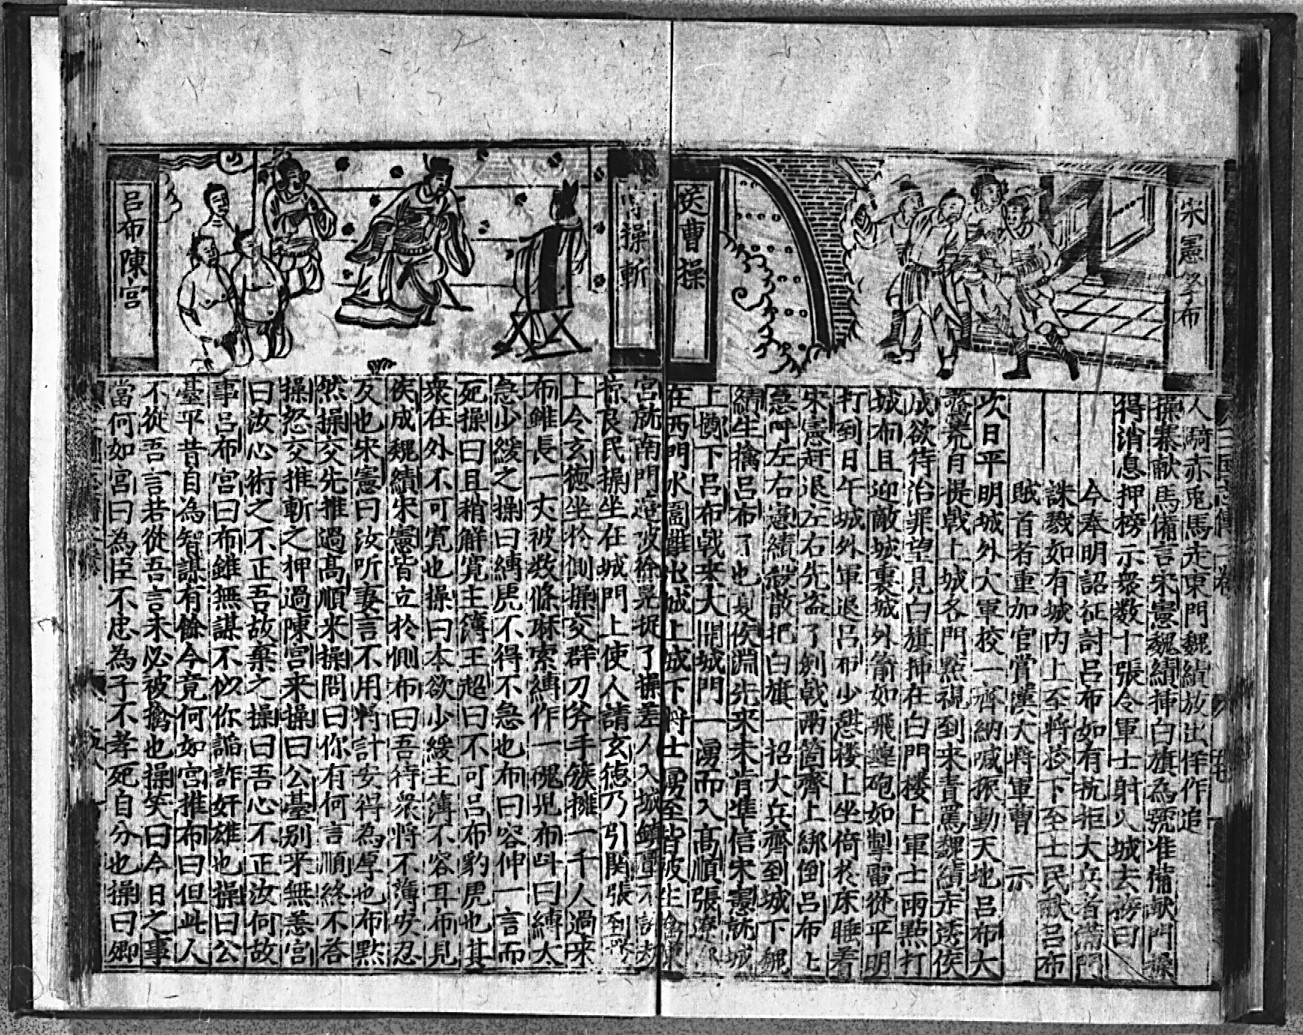 宋憲縛布
送曹操
人騎赤兎馬走東門魏續放出佯作追
操寨献馬備言宋憲魏續挿白旗為號准備献門操
得消息押榜示衆数十張令軍士射入城去榜曰
今奉明詔征討呂布如有抗拒大兵者備門
誅戮如有城内上至將校下至士民献呂布
賊首者重加官賞漢大將軍曹 示
次日平明城外大軍挍一齊納喊振動天地呂布大
驚荒自提戟上城各門點視到來責罵魏續走透侯
成欲待治罪望見白旗挿在白門楼上軍士兩點打
城布且迎敵城裏城外箭如飛蝗砲如掣雷從平明
打到日午城外軍退呂布少憇楼上坐倚於床睡着
宋憲赶退左右先盗了劍戟兩箇齊上綁倒呂布上
急呼左右憲續殺散把白旗一招大兵齊到城下魏
續生擒呂布了也夏侯淵先來未肯准信宋憲就城
上擲下呂布戟來大開城門一湧而入高順張遼
在西門水圍難出城上城下將士湧至皆被生擒陳
呂布陳宮
曹操斬
宮就南門邊被徐晃捉了操差人入城
良民操坐在城門上使人請玄德乃引関張到
上令玄德坐於側操交群刀斧手簇擁一千人過来
布雖長一丈被数條麻索縛作一塊児布呌曰縛太
急少緩之操曰縛虎不得不急也布曰容伸一言而
死操曰且稍觧寛主簿王超曰不可呂布豹虎也其
衆在外不可寛也操曰本欲少緩主簿不容耳布見
侯成魏續宋憲皆立於側布曰吾待衆將不薄安忍
反也宋憲曰汝听妻言不用將計安得為厚也布黙
然操交先推過高順来操問曰你有何言順終不答
操怒交推斬之押過陳宮来操曰公臺别來無恙宮
曰汝心術之不正吾故棄之操曰吾心不正汝何故
事呂布宮曰布雖無謀不似你謟詐奸雄也操曰公
臺平昔自為智謀有餘今竟何如宮推布曰但此人
不從吾言若從吾言未必被擒也操笑曰今日之事
當何如宮曰為臣不忠為子不孝死自分也操曰卿